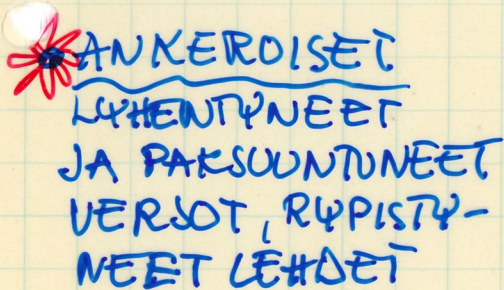 ANKEROISET
LYHENTYNEET
JA PAKSUUNTUNEET
VERSOT, RYPISTY-
NEET LEHDET